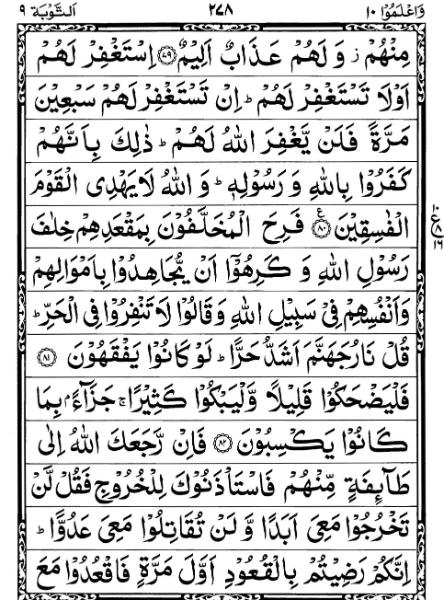 وَاعْلَمُوْٓا ١٠ ٢٧٨ اَلتَّوْبَة ٩
مِنْهُمْ ز وَلَهُمْ عَذَابٌ اَلِيْمٌ ﴿٧٩﴾ اِسْتَغْفِرْ لَهُمْ
اَوْلَا تَسْتَغْفِرْ لَهُمْ ؕ اِنْ تَسْتَغْفِرْ لَهُمْ سَبْعِيْنَ
مَرَّةً فَلَنْ يَّغْفِرَ اللهُ لَهُمْ ؕ ذٰلِكَ بِاَنَّهُمْ
كَفَرُوْا بِاللهِ وَرَسُوْلِهٖ ؕ وَاللهُ لَا يَهْدِى الْقَوْمَ
الْفٰسِقِيْنَ ﴿٨٠﴾ ع فَرِحَ الْمُخَلَّفُوْنَ بِمَقْعَدِهِمْ خِلٰفَ
١٠ ع ٨ ١٦
رَسُوْلِ اللهِ وَكَرِهُوْٓا اَنْ يُّجَاهِدُوْا بِاَمْوَالِهِمْ
وَاَنْفُسِهِمْ فِىْ سَبِيْلِ اللهِ وَقَالُوْا لَا تَنْفِرُوْا فِى الْحَرِّ ؕ
قُلْ نَارُ جَهَنَّمَ اَشَدُّ حَرًّا ؕ لَوْ كَانُوْا يَفْقَهُوْنَ ﴿٨١﴾
فَلْيَضْحَكُوْا قَلِيْلًا وَّلْيَبْكُوْا كَثِيْرًا ۚ جَزَآءًۢ بِمَا
كَانُوْا يَكْسِبُوْنَ ﴿٨٢﴾ فَاِنْ رَّجَعَكَ اللهُ اِلٰى
طَآئِفَةٍ مِّنْهُمْ فَاسْتَاْذَنُوْكَ لِلْخُرُوْجِ فَقُلْ لَّنْ
تَخْرُجُوْا مَعِىَ اَبَدًا وَّلَنْ تُقَاتِلُوْا مَعِىَ عَدُوًّا ؕ
اِنَّكُمْ رَضِيْتُمْ بِالْقُعُوْدِ اَوَّلَ مَرَّةٍ فَاقْعُدُوْا مَعَ